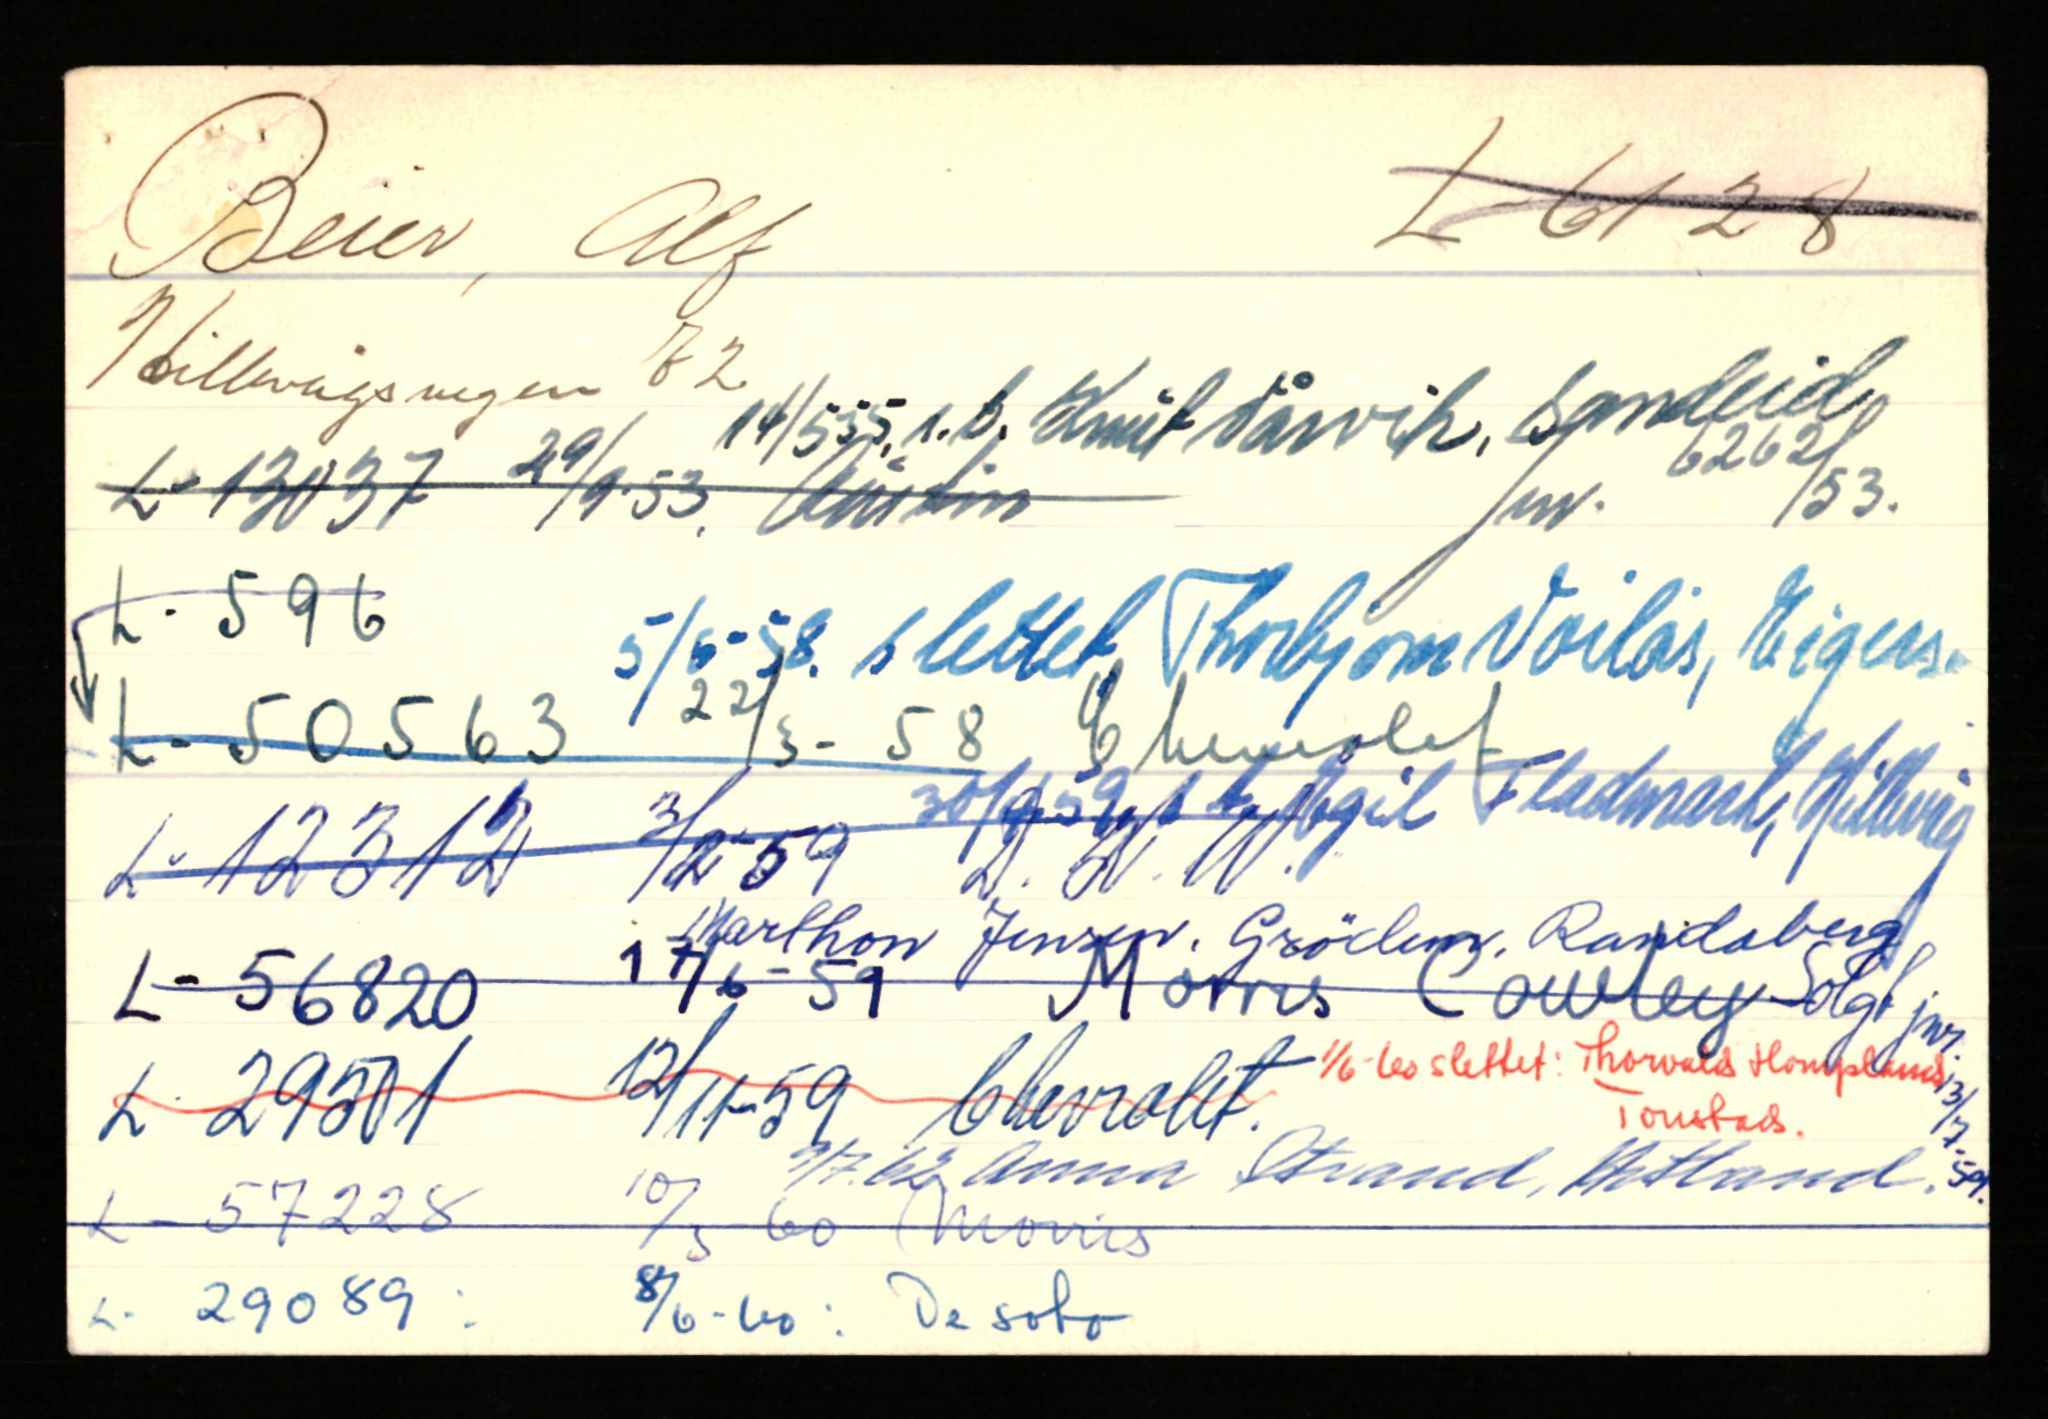 Beier, Alf L-6128
Hillevågsvegen 72
14/5-55, s.b. Knut Vårvik, Sandeid
L-13037 29/9-53. Austin jnr. 6262/53.
L-596
5/6-58. slettet, Thorbjørn Voilås, Eigers.
L-50563 22/3-58 Chevrolet
30/4-59, s.b. Egil Fladmark, Hillevåg
L-12312 3/2-59 D.K.W.
Marthon Jensen, Grödem, Randaberg
L-56820 17/6-59 Morris Cowley Solgt jnr. 13/7-59.
L-29501 12/11-59 Chevrolet. 1/6-60 slettet: Thorvald Hompland,
Tonstad.
Anna Strand, Hetland.
L-57228 10/3-60 Morris
L-29089: 8/6-60: De soto